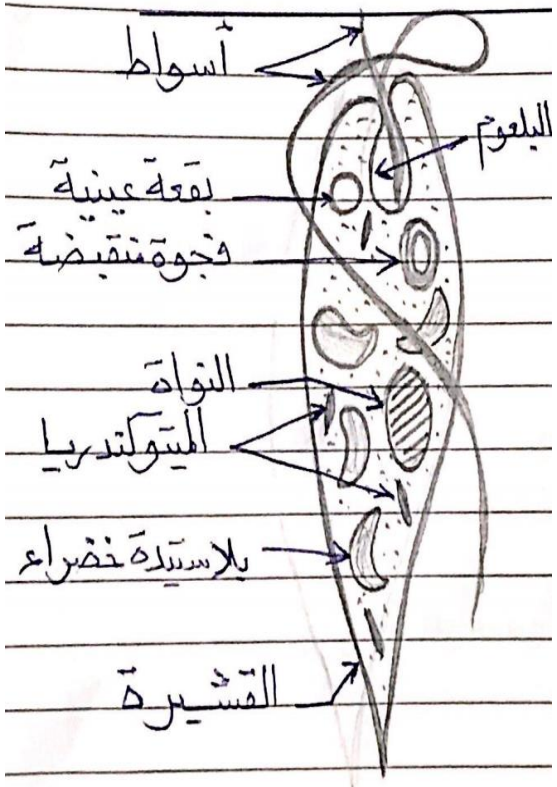 أسواط
البلعوم
بقعة عينية
فجوة منقبضة
النواة
الميتوكندريا
بلاستيدة خضراء
القشيرة